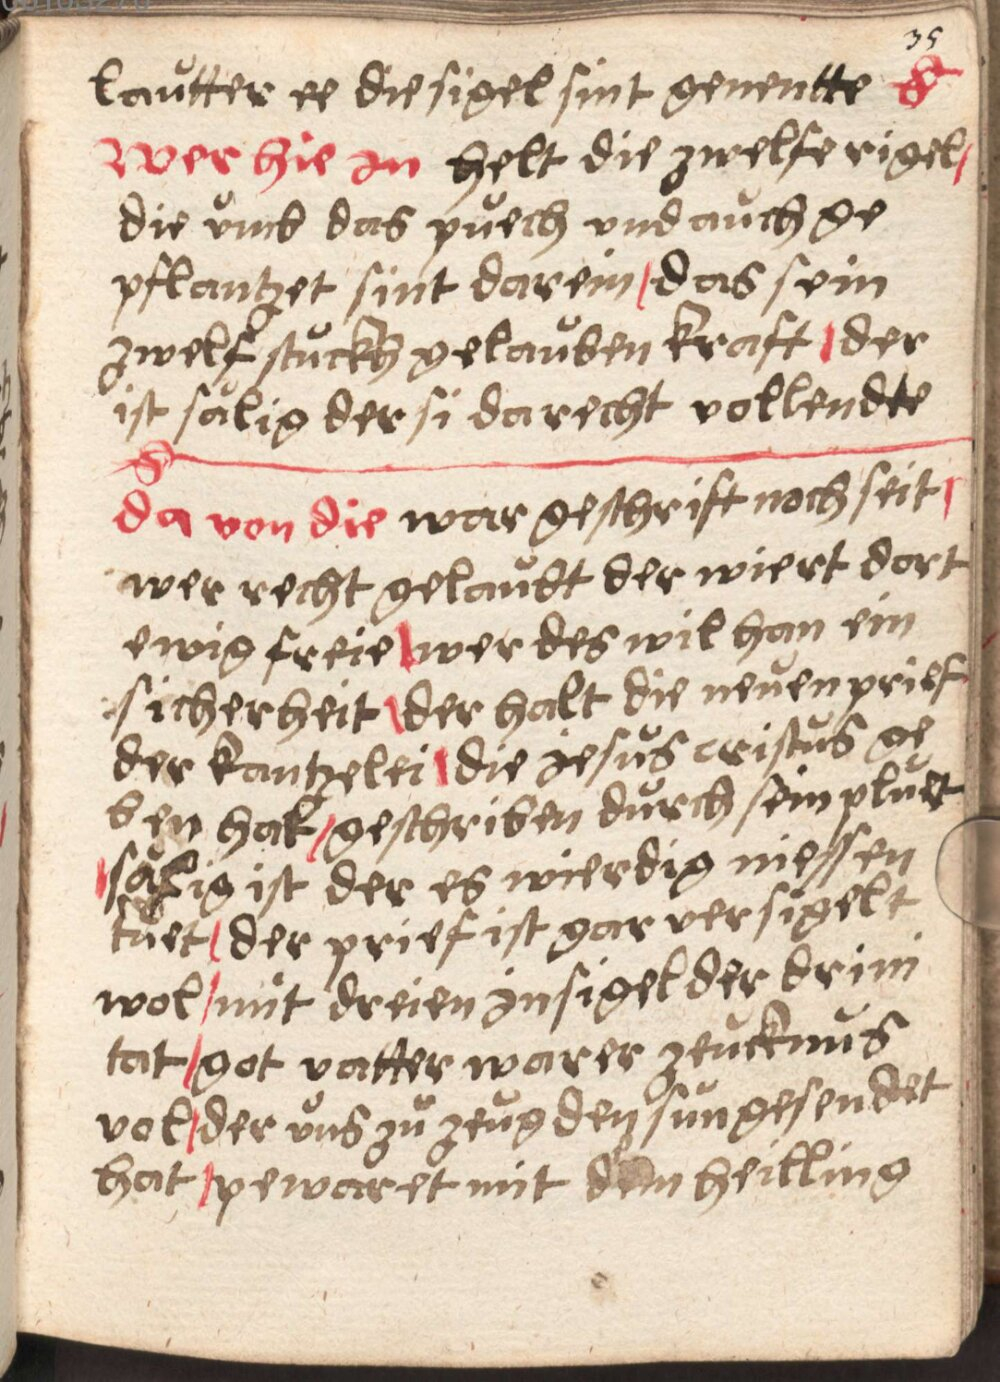 35
lautter ee die sigel sint genentte
Wer hie in helt die zwelfe rigel
die vmb das puech vnd auch ge
pflantzet sint darein / das sein
zwelf stuckh gelauben kraft / der
ist sälig der si da recht vollendte
da von die war geschrift noch seit /
wer recht gelaubt der wiert dort
ewig freie / wer des wil han ein
sicherheit / der halt die neuen prief
der kantzelei / die jesus cristus ge
ben hat / geschriben durch sein pluet
/ sälig ist der es wierdig niessen
tuet / der prief ist gar versigelt
wol / mit dreien insigel der drini
tat / got vatter warer zeucknus
vol / der uns zu zeug den sun gesendet
hat / pewaret mit dem heilling